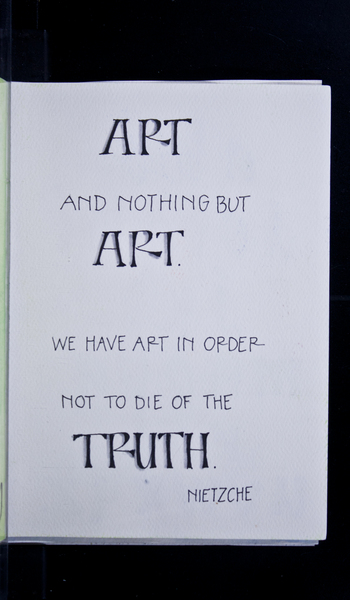 ART
AND NOTHING BUT
ART.
WE HAVE ART IN ORDER
NOT TO DIE OF THE
TRUTH.
NIETZCHE